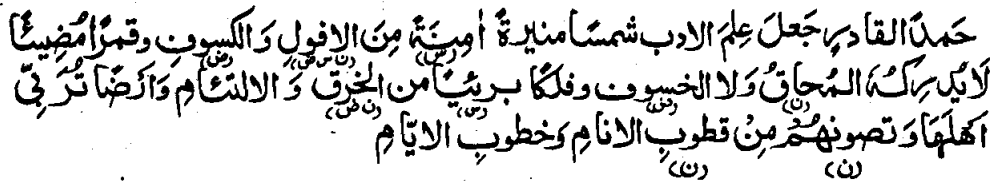 حَمدًا لقادرٍ جَعلَ عِلمَ الادب شمسًا منيرةً اٰمِنَةً مِنَ الافولِ وَالكسوفِ وقمرًا مُضِيئًا
لَا يُدرِكُهُ المُحاقُ وَلا الخسوف وفلكًا بريئًا من الخرقِ وَالالتئامِ وَاَرضًا تُرَبِّيْ
اَهلَهَا وَتصونهُمْ مِنْ قطوبِ الانامِ وَخطوبِ الايّامِ